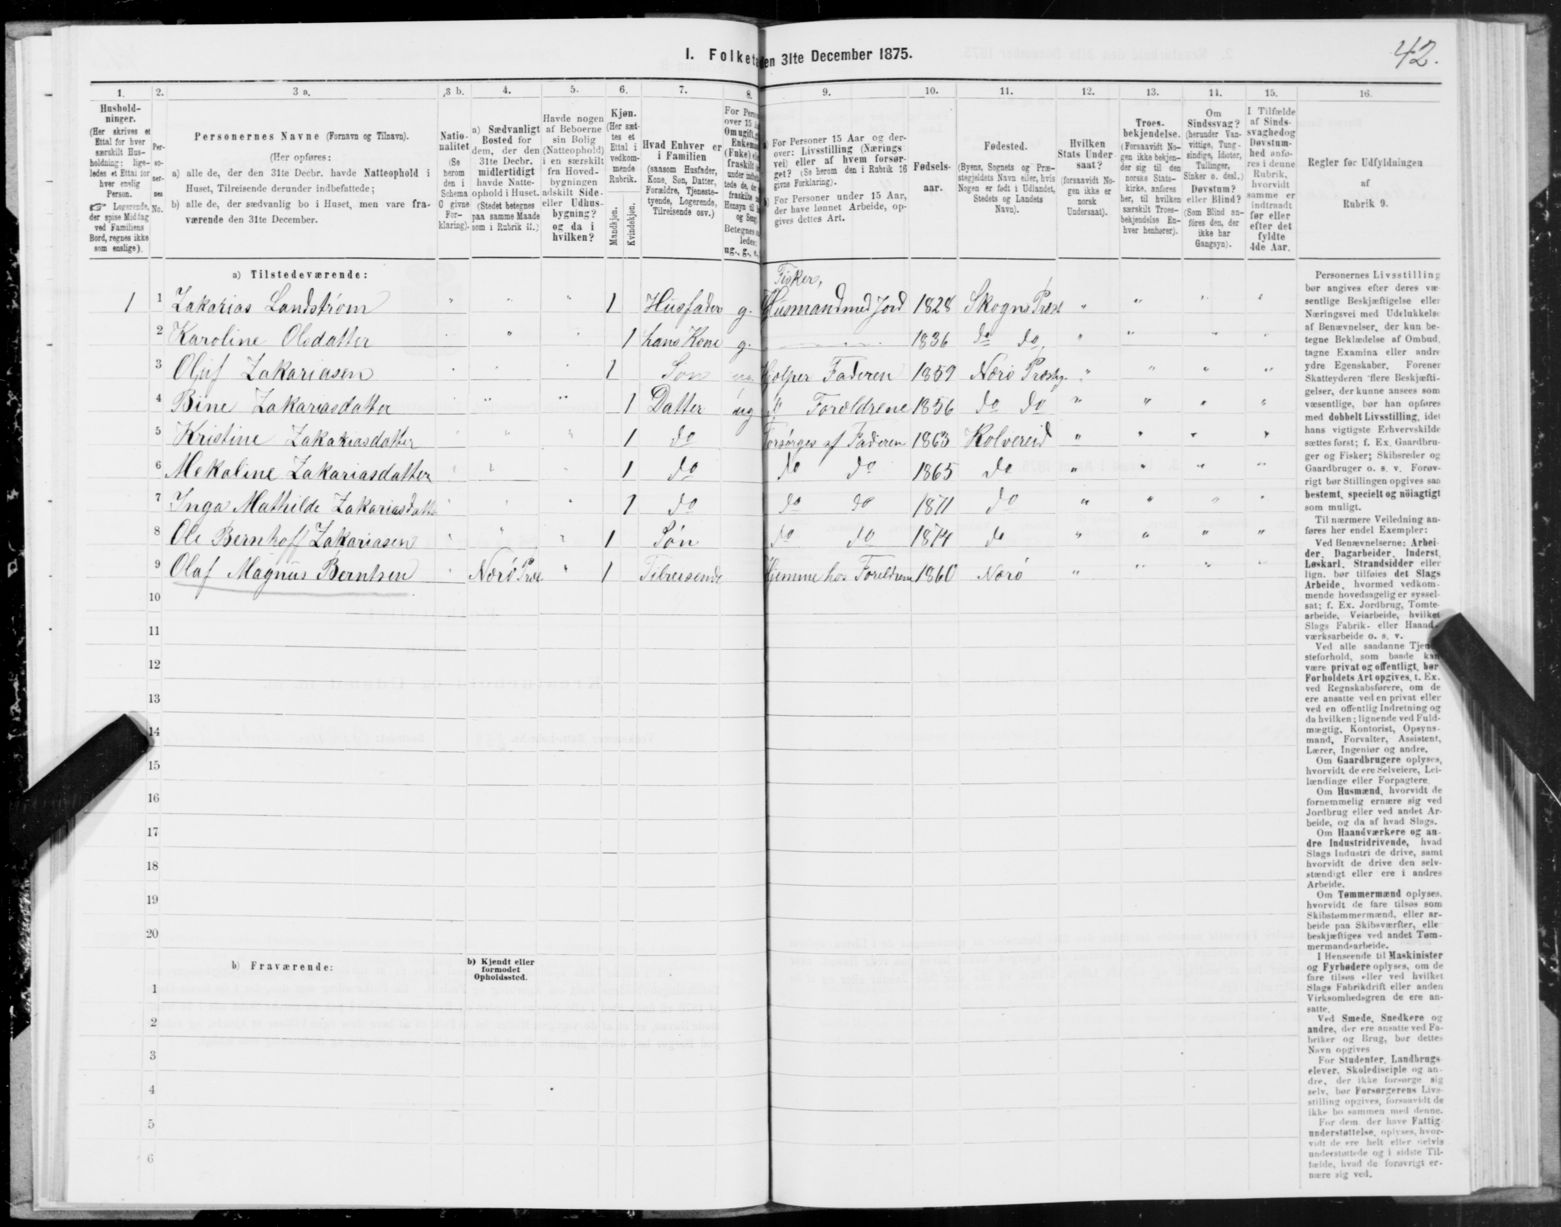 42.
I. Folketa en 31te December 1875.
1. 2. 3 a. 3 b. 4. 5. 6. 7. 8. 9. 10. 11. 12. 13. 14. 15. 16.
Hushold-
ninger.
(Her skrives et
Ettal for hver
særskilt Hus-
holdning; lige-
ledes et Ettal for
hver enslig
Person.
☞ Logerende,
der spise Middag
ved Familiens
Bord, regnes ikke
som enslige).
Per-
so-
ner-
nes
No.
Personernes Navne (Fornavn og Tilnavn).
(Her opføres:
a) alle de, der den 31te Decbr. havde Natteophold i
Huset, Tilreisende derunder indbefattede;
b) alle de, der sædvanlig bo i Huset, men vare fra-
værende den 31te December.
Natio-
nalitet
(Se
herom
den i
Schema
C givne
For-
klaring).
a) Sædvanligt
Bosted for
dem, der den
31te Decbr.
midlertidigt
havde Natte-
ophold i Huset.
(Stedet betegnes
paa samme Maade
som i Rubrik 11.)
Havde nogen
af Beboerne
sin Bolig
(Natteophold)
i en særskilt
fra Hoved-
bygningen
adskilt Side-
eller Udhus-
bygning?
og da i
hvilken?
Kjøn.
(Her sæt-
tes et
Ettal i
vedkom-
mende
Rubrik.
Mandkjøn.
Kvindekjøn.
Hvad Enhver er
i Familien
(saasom Husfader,
Kone, Søn, Datter,
Forældre, Tjeneste-
tyende, Logerende,
Tilreisende osv.)
For Perso
over 15
Om ugift,
Enkeman
(Enke) el
fraskilt
Betegnes
ledes:
ug., g., e.,
For Personer 15 Aar og der-
over: Livsstilling (Nærings
vei) eller af hvem forsør-
get? (Se herom den i Rubrik 16
givne Forklaring).
For Personer under 15 Aar,
der have lønnet Arbeide, op-
gives dettes Art.
Fødsels-
aar.
Fødested.
(Byens, Sognets og Præ-
stegjeldets Navn eller, hvis
Nogen er født i Udlandet,
Stedets og Landets
Navn).
Hvilken
Stats Under
saat?
(forsaavidt No-
gen ikke er
norsk
Undersaat).
Troes-
bekjendelse.
(Forsaavidt No-
gen ikke bekjen-
der sig til den
norske Stats-
kirke, anføres
her, til hvilken
særskilt Troes-
bekjendelse En-
hver henhører).
Om
Sindssvag?
(herunder Van-
vittige, Tung-
sindige, Idioter,
Tullinger,
Sinker o. desl.)
Døvstum?
eller Blind?
(Som Blind an-
føres den, der
ikke har
Gangsyn).
I Tilfælde
af Sinds-
svaghedog
Døvstum-
hed anfø-
res i denne
Rubrik,
hvorvidt
samme er
indtraadt
før eller
efter det
fyldte
4de Aar.
Regler før Udfyldningen
af
Rubrik 9.
a) Tilstedeværende:
Fisker,
1 1 Zakarias Landstrøm " " " 1 Husfader g. Husmand med Jord 1828 Skogns Præst " " " "
2 Karoline Olsdatter " " " 1 hans Kone g. 1836 do do, " " " "
3 Oluf Zakariasen " " " 1 Søn Hjelper Faderen 1859 Nærø Præstg. " " " "
4 Bine Zakariasdatter " " " 1 Datter ug do Forældrene 1856 do do " " " "
5 Kristine Zakariasdatter " " " 1 do Forsørges af Faderen 1863 Kolvereid " " " "
6 Mekaline Zakariasdatter " " " 1 do do do 1865 do " " " "
7 Inga Mathilde Zakariasdatter " " " 1 do do do 1871 do " " " "
8 Ole Bernhoff Zakariasen " " " 1 Søn do do 1874 do " " " "
9 Olaf Magnus Berntsen " Nærø Præ " 1 Tilreisende Hjemme hos Foreldrene 1860 Nærø " " " "
10
11
12
13
14
15
16
17
18
19
20
b) Fraværende:
b) Kjendt eller
formodet
Opholdssted.
1
2
3
4
5
6
Personernes Livsstilling
bør angives efter deres væ-
sentlige Beskjæftigelse eller
Næringsvei med Udelukkelse
af Benævnelser, der kun be-
tegne Beklædelse af Ombud,
tagne Examina eller andre
ydre Egenskaber. Forener
Skatteyderen flere Beskjæfti-
gelser, der kunne ansees som
væsentlige, bør han opføres
med dobbelt Livsstilling, idet
hans vigtigste Erhvervskilde
sættes først; f. Ex. Gaardbru-
ger og Fisker; Skibsreder og
Gaardbruger o. s. v. Forøv-
rigt bør Stillingen opgives saa
bestemt, specielt og nöiagtigt
som muligt.
Til nærmere Veiledning an-
føres her endel Exempler:
Ved Benævnelserne: Arbei-
der, Dagarbeider, Inderst,
Løskarl, Strandsidder eller
lign. bør tilføies det Slags
Arbeide, hvormed vedkom-
mende hovedsagelig er syssel-
sat; f. Ex. Jordbrug, Tomte-
arbeide, Veiarbeide, hvilket
Slags Fabrik- eller Haand-
værksarbeide o. s. v.
Ved alle saadanne Tjene-
steforhold, som baade kan
være privat og offentligt, bør
Forholdets Art opgives, t. Ex.
ved Regnskabsførere, om de
ere ansatte ved en privat eller
ved en offentlig Indretning og
da hvilken; lignende ved Fuld-
mægtig, Kontorist, Opsyns-
mand, Forvalter, Assistent,
Lærer, Ingeniør og andre.
Om Gaardbrugere oplyses,
hvorvidt de ere Selveiere, Lei-
lændinge eller Forpagtere.
Om Husmænd, hvorvidt de
fornemmelig ernære sig ved
Jordbrug eller ved andet Ar-
beide, og da af hvad Slags.
Om Haandværkere og an-
dre Industridrivende, hvad
Slags Industri de drive, samt
hvorvidt de drive den selv-
stændigt eller ere i andres
Arbeide.
Om Tømmermænd oplyses,
hvorvidt de fare tilsøs som
Skibstømmermænd, eller ar-
beide paa Skibsværfter, elle
beskjæftiges ved andet Tøm-
mermandsarbeide.
I Henseende til Maskinister
og Fyrbødere oplyses, om de
fare tilsøs eller ved hvilket
Slags Fabrikdrift eller anden
Virksomhedsgren de ere an-
satte.
Ved Smede, Snedkere og
andre, der ere ansatte ved Fa-
briker og Brug, bør dettes
Navn opgives
For Studenter, Landbrugs-
elever, Skoledisciple og an-
dre, der ikke forsørge sig
selv, bør Forsørgerens Livs-
stilling opgives, forsaavidt de
ikke bo sammen med denne.
For dem, der have Fattig-
understøttelse, oplyses, hvor-
vidt de ere helt eller delvis
understøttede og i sidste Til-
fælde, hvad de forøvrigt er-
nære sig ved.